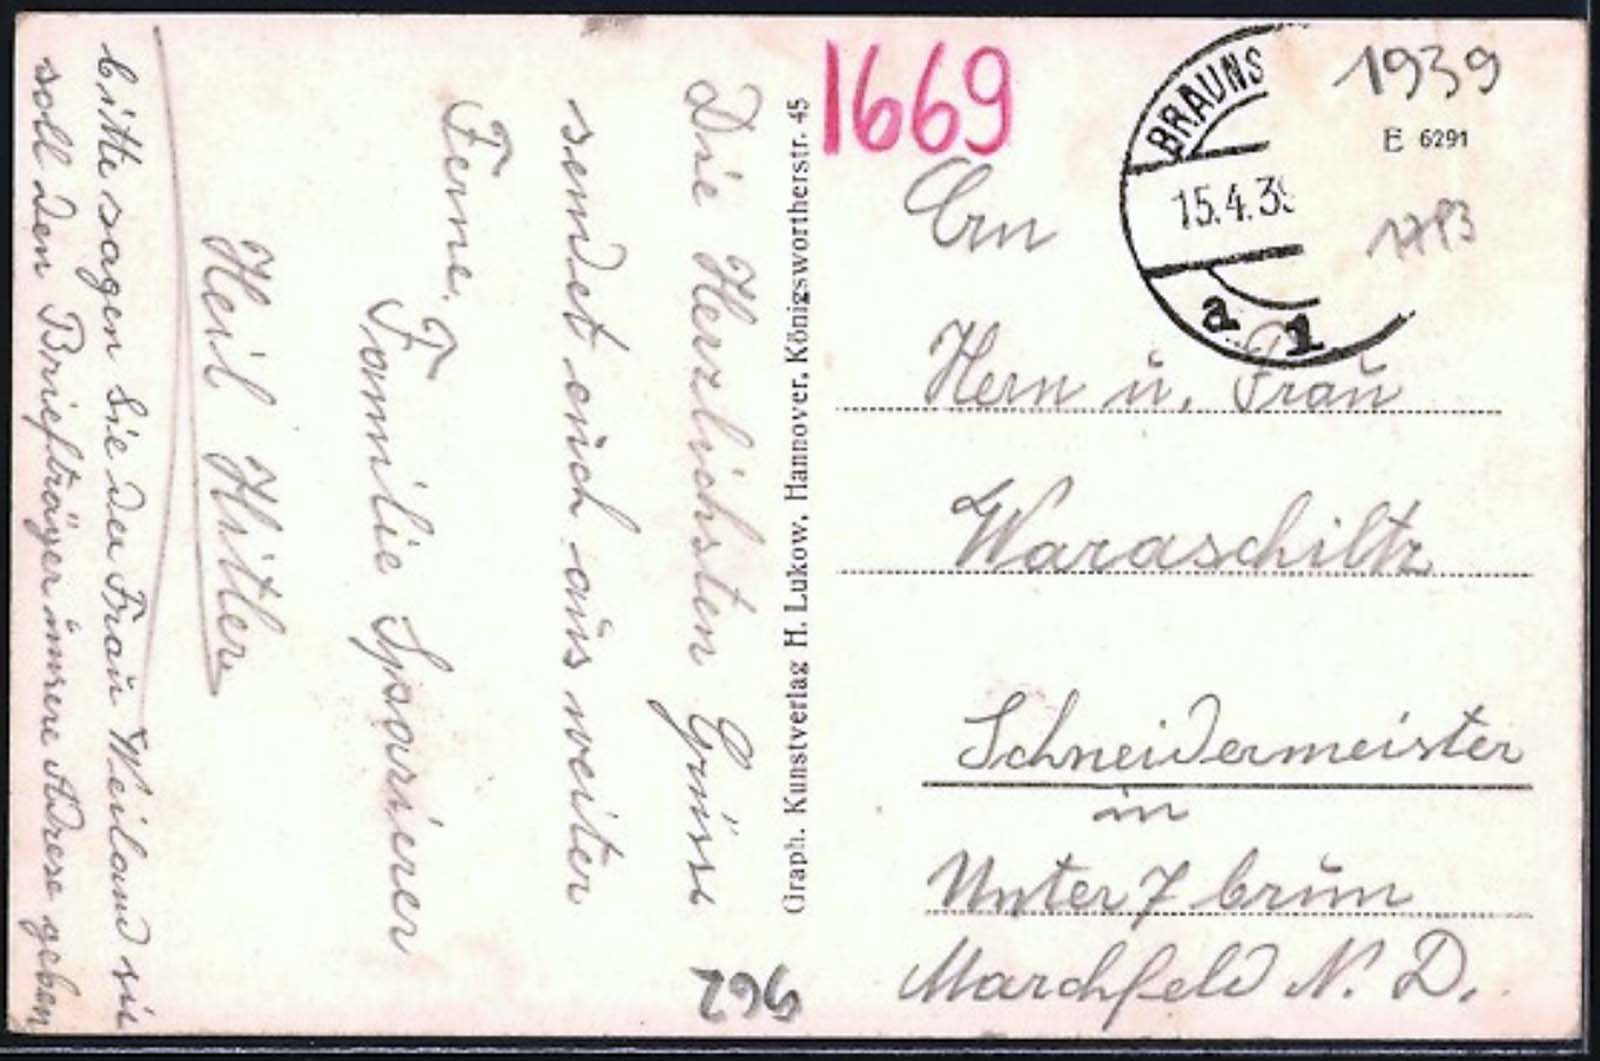 Die Herzlichsten Grüsse
sendet euch aus weiter
Ferne.
Familie
Heil Hitler
bitte sagen Sie der Frau Weiland sie
soll den Briefträger unsere Adrese geben
Graph. Kunstverlag H. Lukow, Hannover, Königswortherstr. 45
962
1669
BRAUNS
15.4.39
a 1
1939
E 6291
An
Hern u. Frau
Waraschiltz
Schneidermeister
in
Unter 7 brun
Marchfeld N. D.